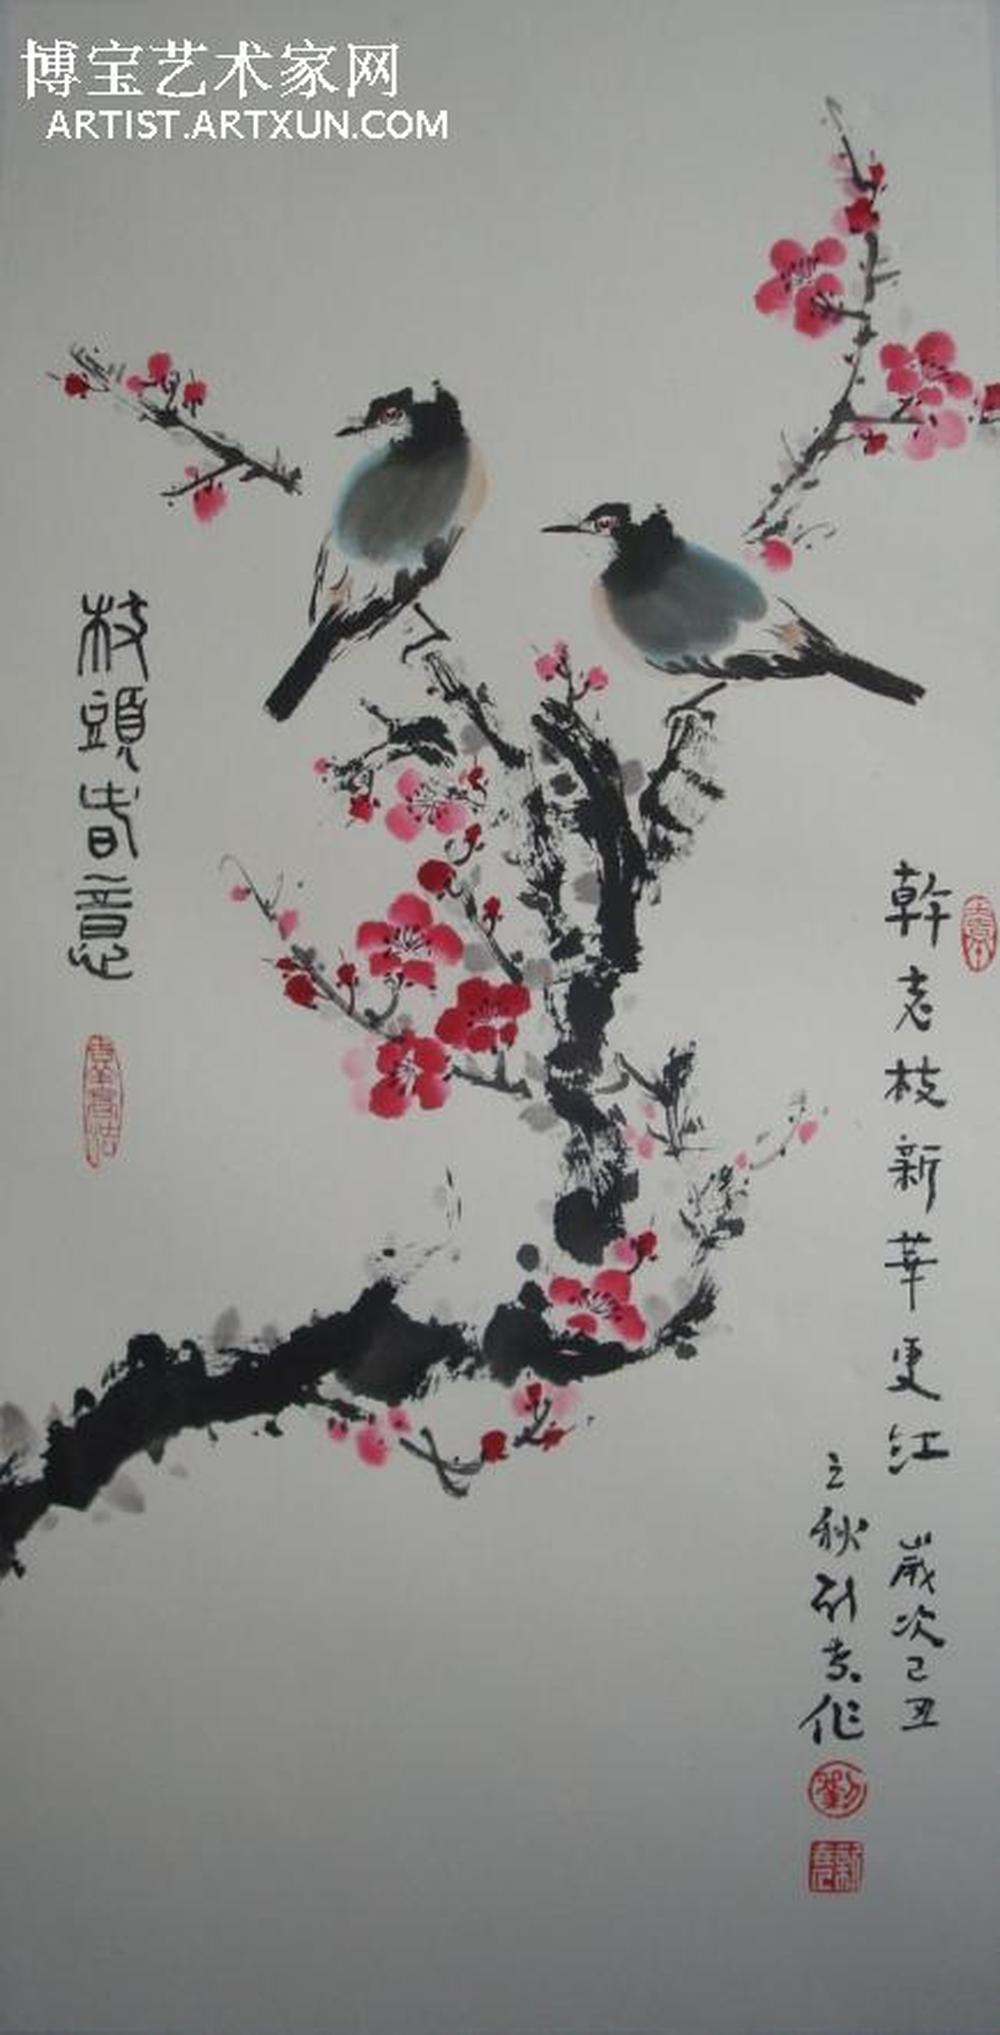 博宝艺术家网
ARTIST.ARTXUN.COM
枝頭春意
幹老枝新華更江 歲次己丑
立秋
作
劉